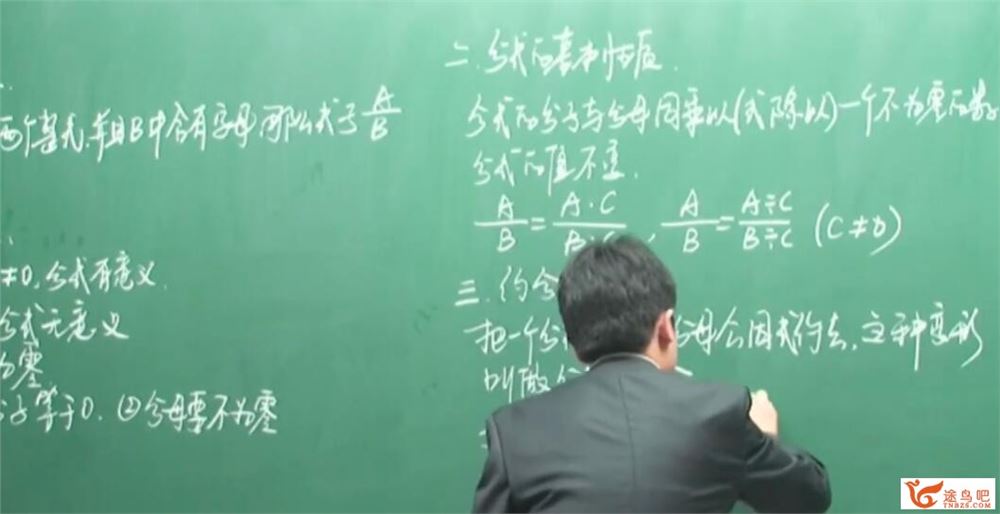 两个整式,并且B中含有字母,那么式子A/B
≠0,分式有意义.
分式无意义
为零
子等于0.②分母要不为零
二.分式的基本性质.
分式的分子与分母同乘以(或除以)一个不为零的数
分式的值不变.
A/B=A·C/B·C,A/B=A÷C/B÷C (C≠0)
三.约分
把一个分 分母公因式约去,这种变形
叫做
途鸟吧
TNBZS.COM